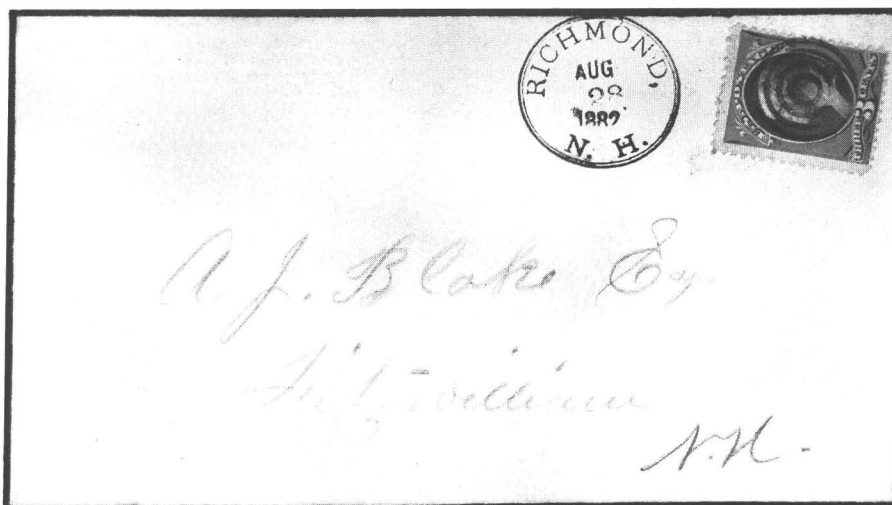 RICHMOND,
AUG
28
1882
N. H.
THREE CENTS
A. J. Blake Esq
Fitz-william
N.H.